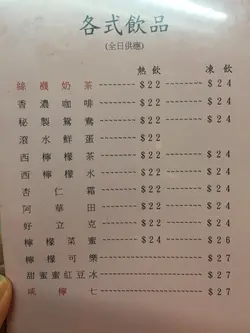 各式飲品
(全日供應)
熱飲 凍飲
絲襪奶茶 $22 $24
香濃咖啡 $22 $24
秘製鴛鴦 $22 $24
滾水鮮蛋 $22
西檸檬茶 $22 $24
西檸檬水 $22 $24
杏仁霜 $22 $24
阿華田 $22 $24
好立克 $22 $24
檸檬菜蜜 $24 $26
檸檬可樂 $27
甜蜜蜜紅豆冰 $27
檸七 $27